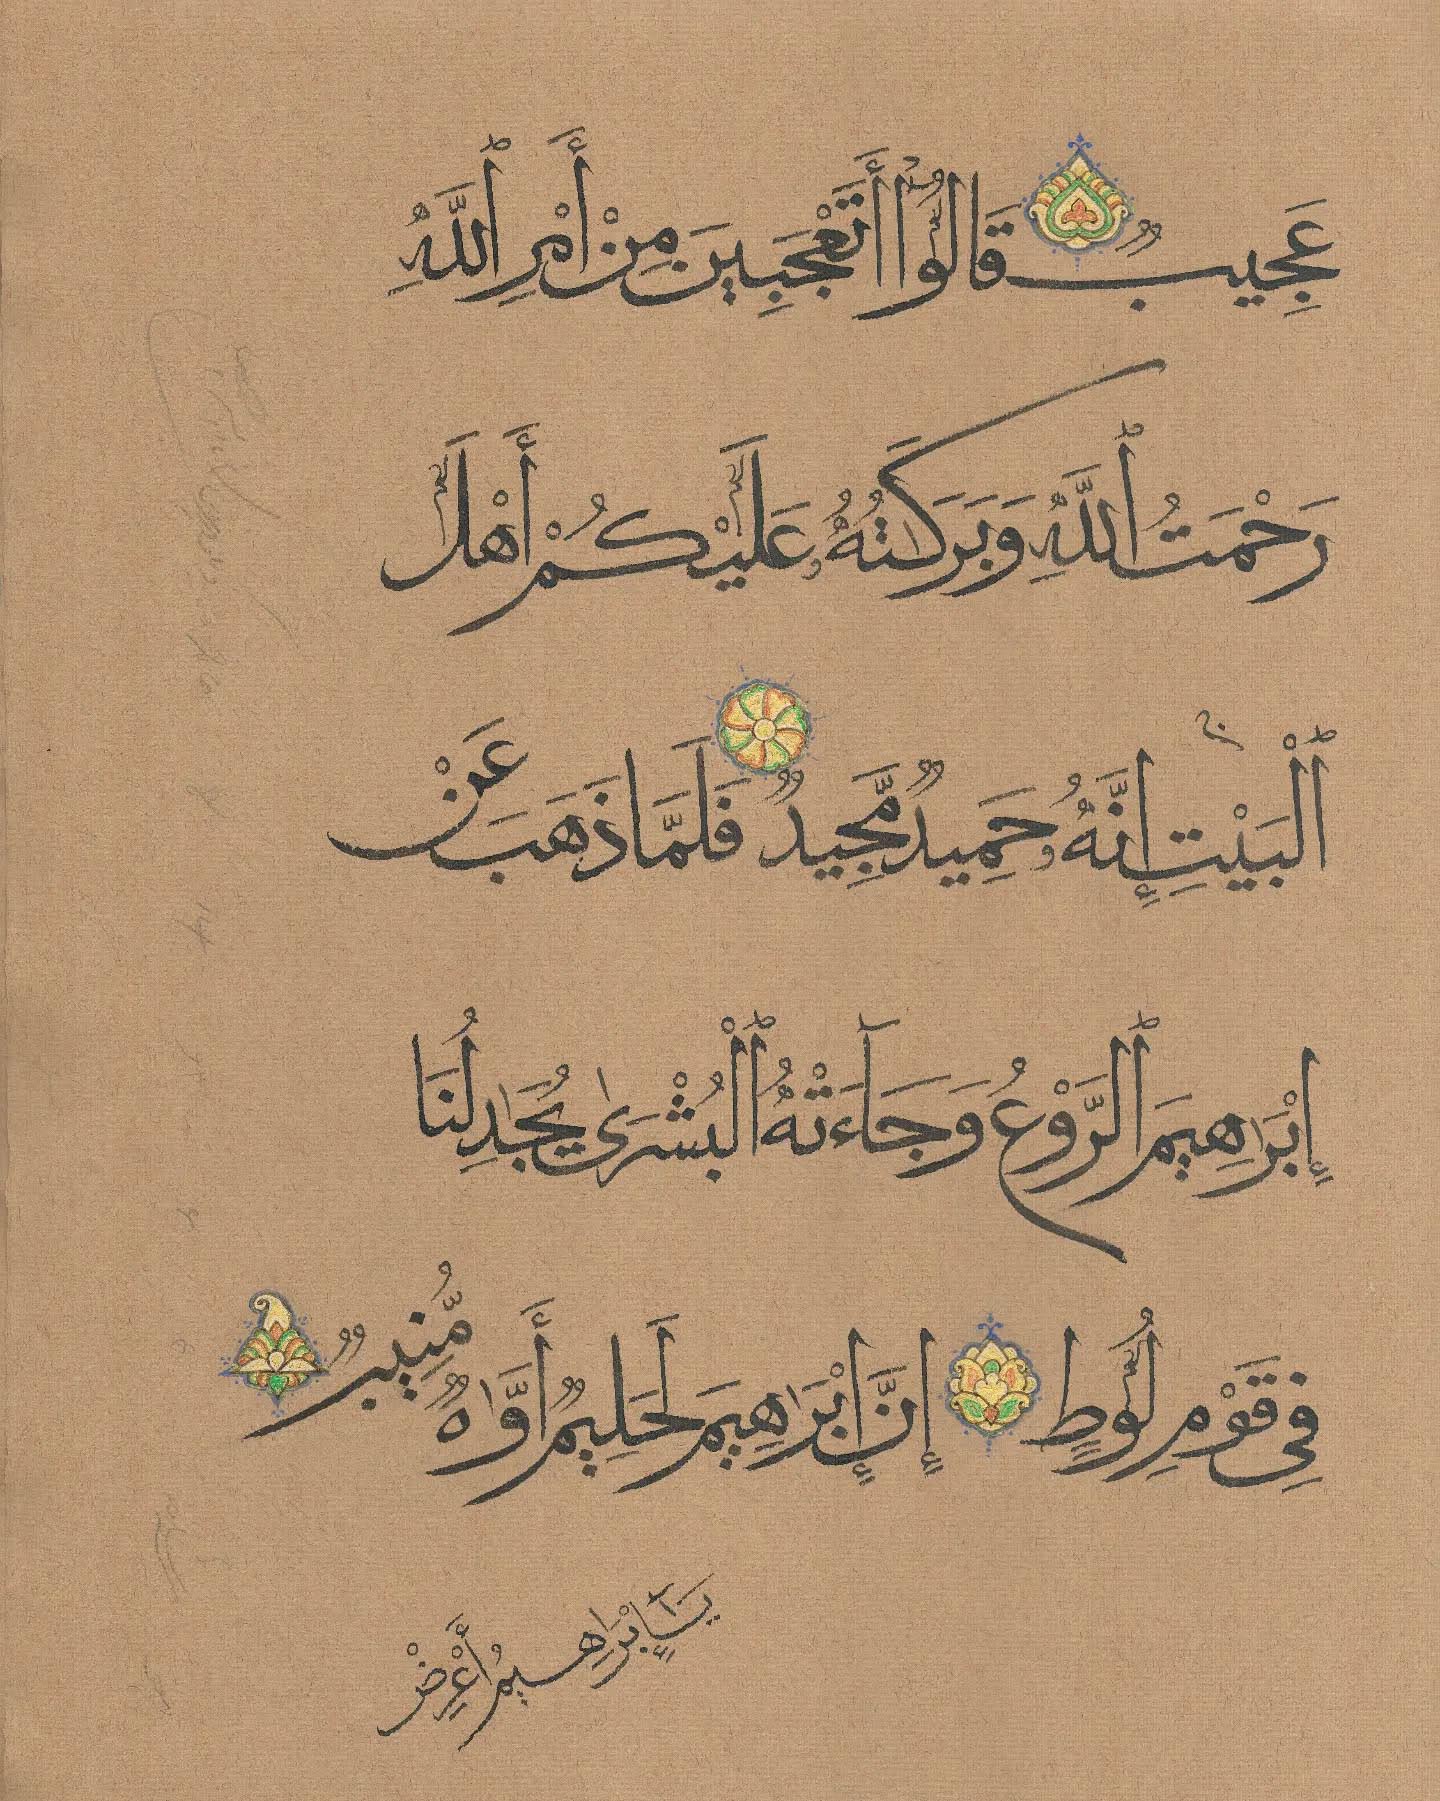 عَجِيبٌ قَالُوٓا۟ أَتَعْجَبِينَ مِنْ أَمْرِ ٱللَّهِ
رَحْمَتُ ٱللَّهِ وَبَرَكَٰتُهُۥ عَلَيْكُمْ أَهْلَ
ٱلْبَيْتِ ۚ إِنَّهُۥ حَمِيدٌ مَّجِيدٌ فَلَمَّا ذَهَبَ عَنْ
إِبْرَٰهِيمَ ٱلرَّوْعُ وَجَآءَتْهُ ٱلْبُشْرَىٰ يُجَٰدِلُنَا
فِى قَوْمِ لُوطٍ إِنَّ إِبْرَٰهِيمَ لَحَلِيمٌ أَوَّٰهٌ مُّنِيبٌ
يَٰٓإِبْرَٰهِيمُ أَعْرِضْ